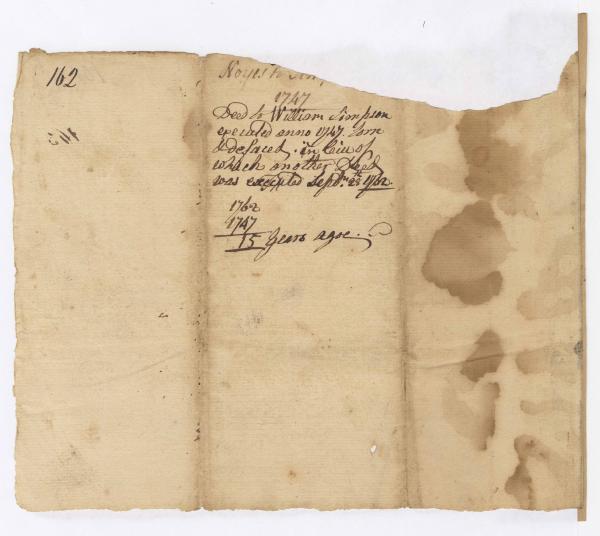 162
Noyes to
1747
Deed to William Simpson
executed anno 1747. torn
& defaced. in lieu of
which another Deed
was executed Septr. 1762
1762
1747
15 Years agoe.